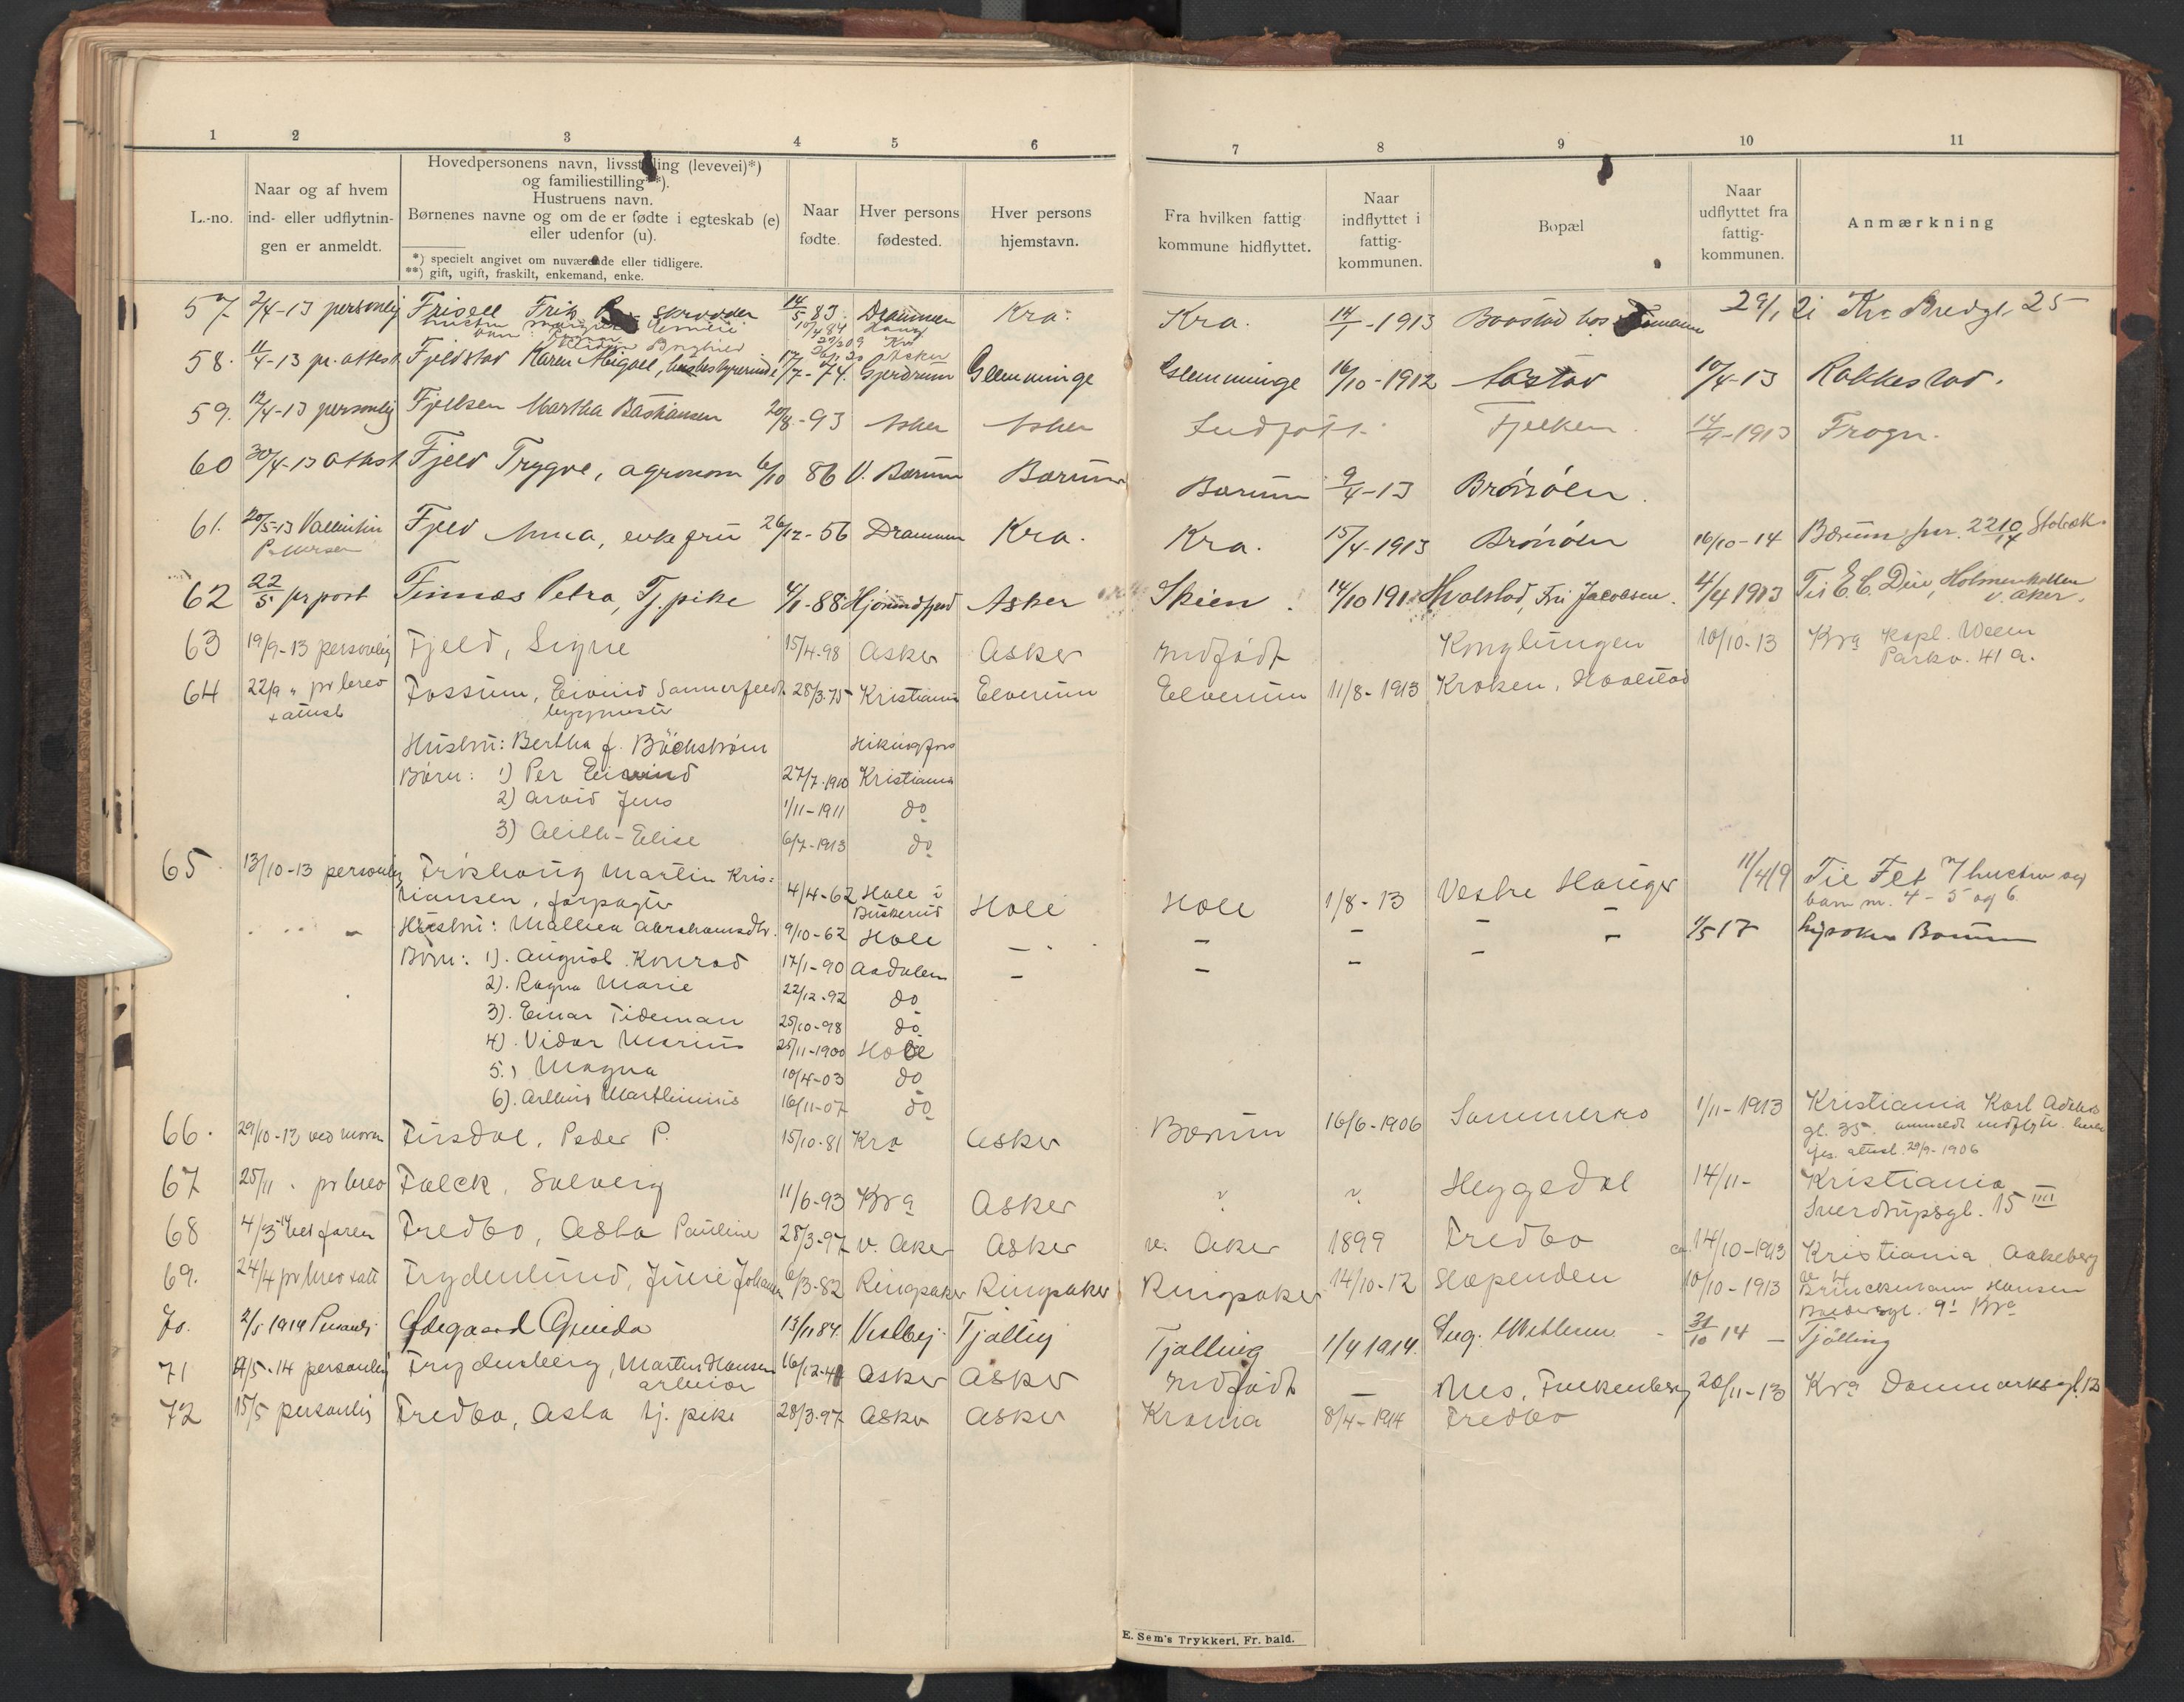 1 2 3 4 5 6 7 8 9 10 11
L.-no.
Naar og af hvem
ind- eller udflytnin-
gen er anmeldt.
Hovedpersonens navn, livsstilling (levevei)*)
og familiestilling**).
Hustruens navn.
Børnenes navne og om de er fødte i egteskab (e)
eller udenfor (u).
*) specielt angivet om nuværende eller tidligere.
**) gift, ugift, fraskilt, enkemand, enke.
Naar
fødte.
Hver persons
fødested.
Hver persons
hjemstavn.
Fra hvilken fattig
kommune hidflyttet.
Naar
indflyttet i
fattig-
kommunen.
Bopæl
Naar
udflyttet fra
fattig-
kommunen.
Anmærkning
57. 2/4-13 personlig Frisell Frits skrædder 14/5 83. Drammen Kra. Kra. 14/1-1913 Baastad hos 29/1 21 Kra Bredgt. 25
58. 11/4-13 pr. attest Fjeldstad Karen Abigael, husbestyrerinde 17/7-74. Gjerdrum Glemminge Glemminge 16/10-1912 10/4-13 Rakkestad.
59. 12/4-13 personlig Fjelksen Martha Bastiansen 20/8-93 Asker Asker Indfødt. Fjelken. 14/4-1913 Frogn.
60 30/4-13 attest Fjeld Trygve, agronom 6/10 86 V. Bærum Bærum Bærum 9/4-13 Brønøen.
61. 20/5-13 Vallentin Fjeld Anna, enkefru 26/12-56 Drammen Kra. Kra. 15/4-1913 Brønøen 16/10-14 Bærum Stabæk
Pettersen
62 22/5 pr post Finnæs Petra, Tj.pike 4/1-88 Hjørundfjord Asker Skien. 14/10 191 Hvalstad, Fru Jacobsen. 4/4 1913 Til E. C. Due, Holmenkollen
v. Aker.
63 19/9-13 personlig Fjeld, Signe 15/4-98 Asker Asker Indfødt Konglungen 10/10-13 Kra kapl. Weem
Parkv. 41 a.
64 22/9 " pr brev Fossum, Eivind Sannerfeldt 28/3-75 Kristiania Elverum Elverum 11/8-1913 Kroken, Hvalstad
+ attest bygmester
Hustru: Bertha f. Bäckstrøm Helsingfors
Børn: 1) Per Eivind 27/7-1910 Kristiania
2) Arvid Jens 1/11-1911 do
3) Elise 6/7-1913 do
65 13/10-13 personlig Frøshaug Martin Kris=
tiansen, forpagter 4/4-62 Hole i Buskerud Hole Hole 1/8-13 Vestre Hauger 11/4 19 Til Fet m/ hustru og
barn nr. 4 - 5 og 6.
Hustru: Mallena Abrahamsdtr. 9/10-62 Hole - - - - - 1/5 17 Lysaker Bærum
Børn: 1). August Konrad 17/1-90 Aadalen - - - -
2). Ragna Marie 22/12-92 do
3). Einar Tideman 25/10-98 do
4). Vidar Marius 25/11-1900 Hole
5.) Magna 10/4-03 do
6). Arthur Marthinius 16/11-07 do
66. 29/10-13 ved moren Fusdal, Peder P. 15/10-81 Kra Asker Bærum 16/6-1906 Sommerro 1/11-1913 Kristiania Karl Adelers
gt. 35. anmeldt indflytt.
attest. 20/9-1906
67 25/11 " pr brev Falck, Solveig 11/6-93 Kra Asker " " Heggedal 14/11- Kristiania
Sverdrupsgt. 15 IIII
68 4/3-14 ved faren Fredbo, Asta Pauline 28/3-97 v. Aker Asker v. Aker 1899 Fredbo ca. 14/10-1913 Kristiania, Aakeberg
69. 24/4 pr brev + att Frydenlund, Julie Johanne 6/3-82 Ringsaker Ringsaker Ringsaker 14/10-12 Slependen 10/10-1913 Brinckmann Hansen
Kra
70. 2/5 1914 Personlig Ødegaard Gunda 13/11 84. Vestby. Tjølling Tjølling 1/4 1914. 31/10 14 - Tjølling
71 /5-14 personlig Frydensberg, Martin Hansen 16/12-4 Asker Asker Indfødt - Nes, Falkenberg 20/11-13 Kra Danmarksgt. 12
arbeider
72 15/5 personlig Fredbo, Asta tj. pike 28/3-97 Asker Asker Krania 8/4-1914 Fredbo
E. Sem's Trykkeri, Fr. hald.